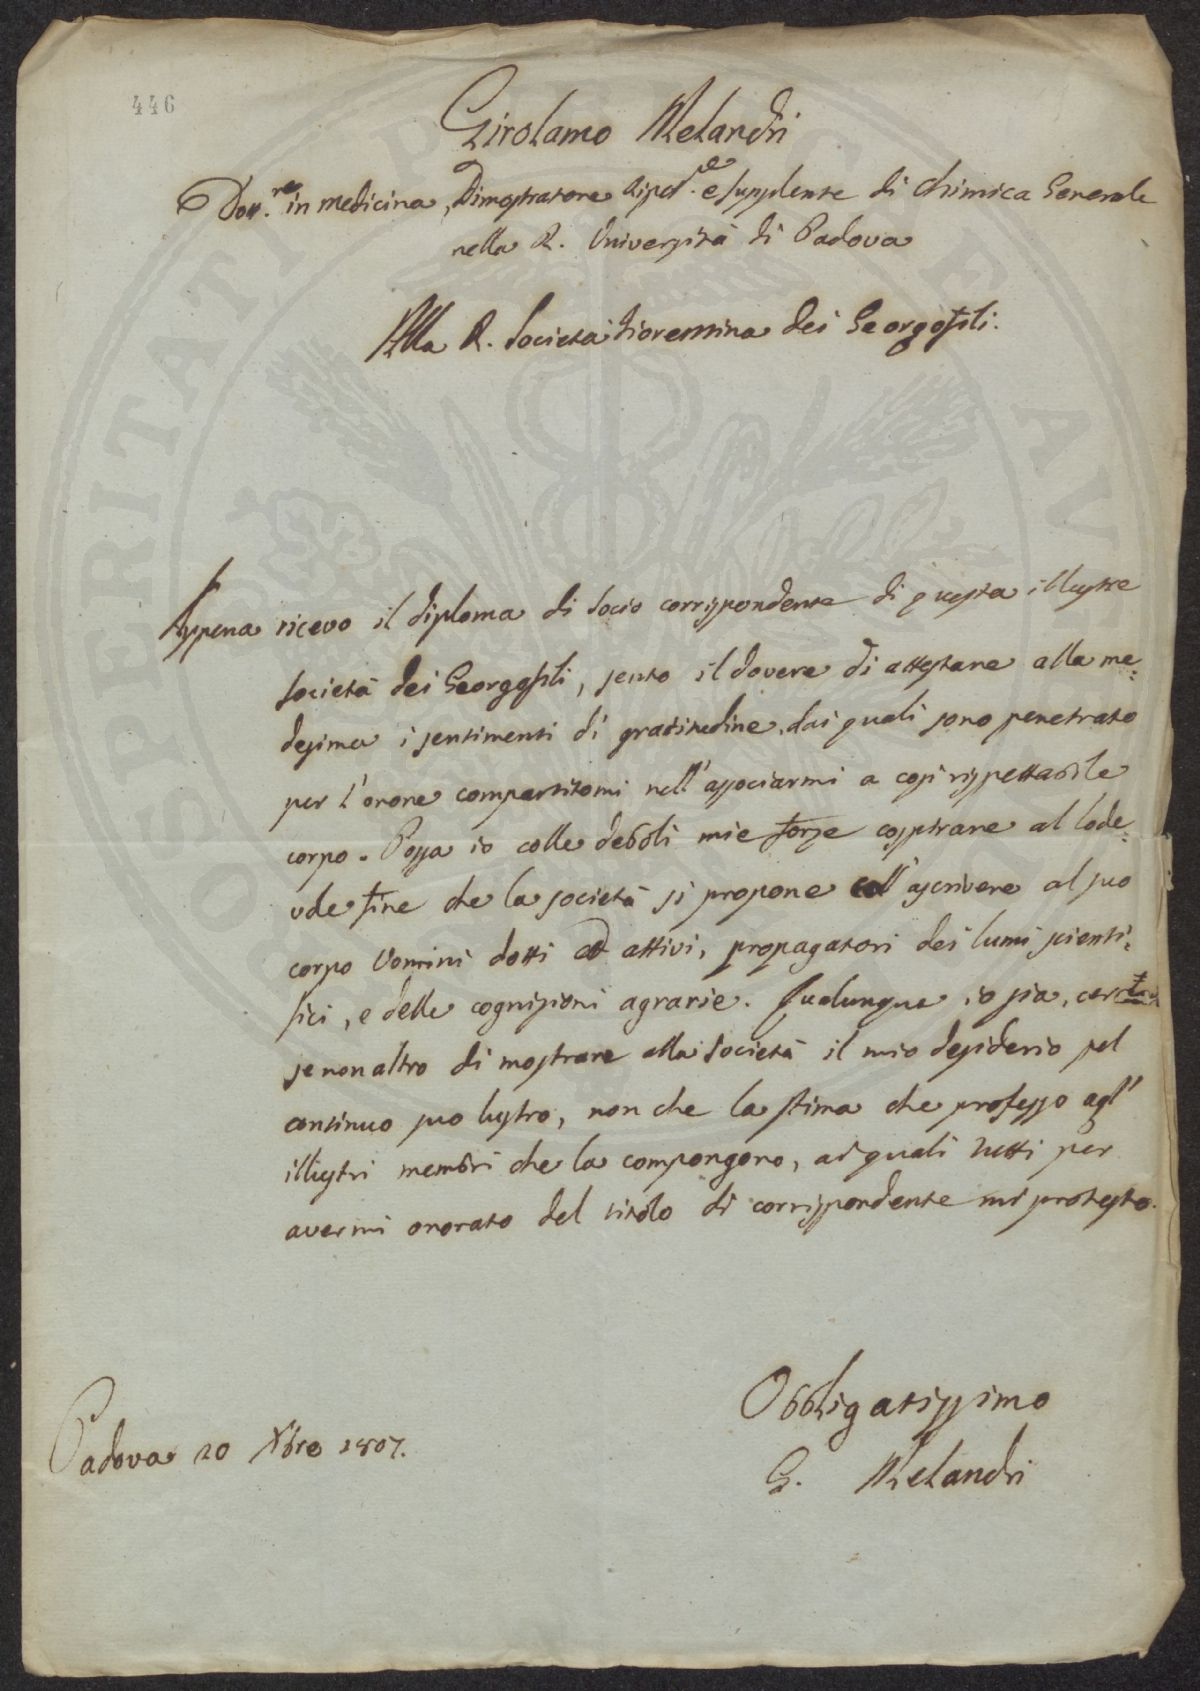 446
Girolamo Melandri
Dott.re in medicina, Dimostratore e supplente di Chimica Generale
nella R. Università di Padova
Alla R. Società Fiorentina dei Georgofili.
Appena ricevo il diploma di Socio corrispondente di questa illustre
Società dei Georgofili, sento il dovere di attestare alla me:
desima i sentimenti di gratitudine, dai quali sono penetrato
per l'onore compartitomi nell'associarmi a così rispettabile
corpo. Possa io colle deboli mie forze cospirare al lode:
vole fine che la società si propone coll'ascrivere al suo
corpo Uomini dotti ed attivi, propagatori dei lumi scienti:
fici, e delle cognizioni agrarie. Qualunque io sia,
se non altro di mostrare alla Società il mio desiderio pel
continuo suo lustro, non che la stima che professo agl'
illustri membri che la compongono, ai quali tutti per
avermi onorato del titolo di corrispondente mi protesto.
Obbligatissimo
Padova 20 Xbre 1807.
G. Melandri